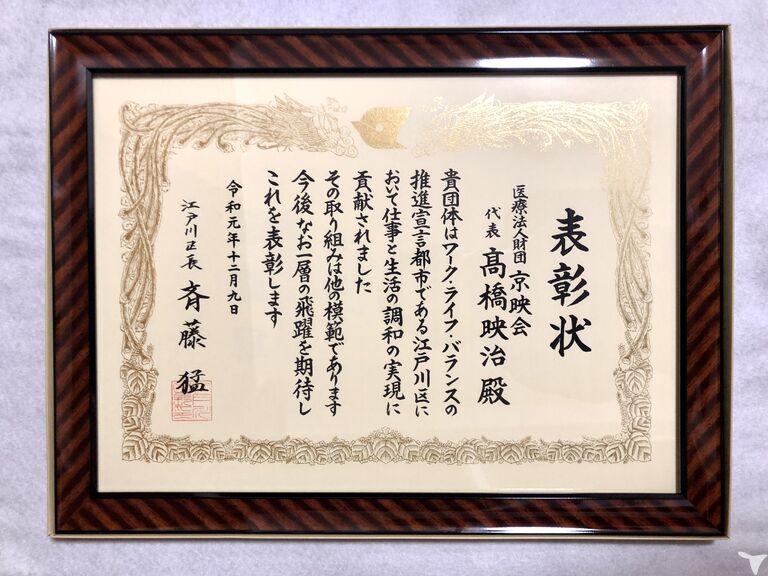 表彰状
医療法人財団 京映会
代表 髙橋映治 殿
貴団体はワーク・ライフ・バランスの
推進宣言都市である江戸川区に
おいて仕事と生活の調和の実現に
貢献されました
その取り組みは他の模範であります
今後なお一層の飛躍を期待し
これを表彰します
令和元年十二月九日
江戸川区長 斉藤 猛